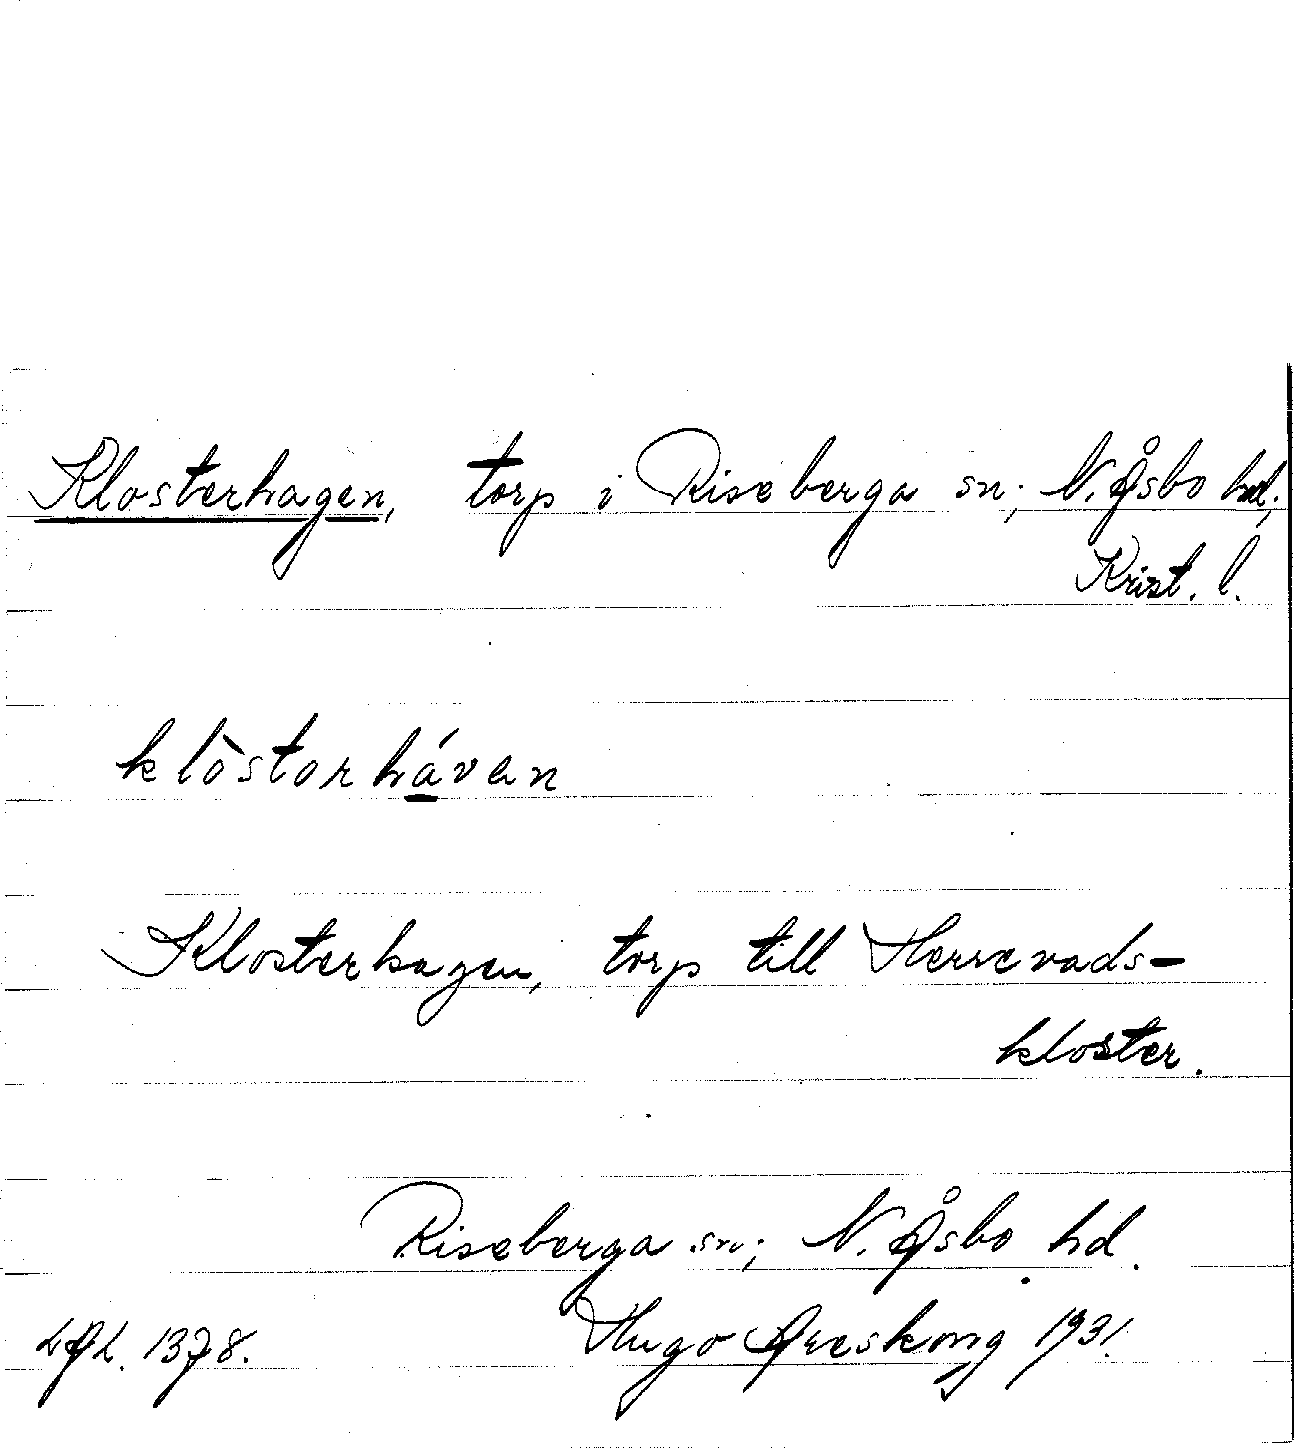 Klosterhagen, torp i Riseberga sn; N. Åsbo hd;
Krist. l.
klòstorháven
Klosterhagen, torp till Herrevads-
kloster.
Riseberga sn; N. Åsbo hd.
Hugo Areskoug 1931.
LAL. 1378.